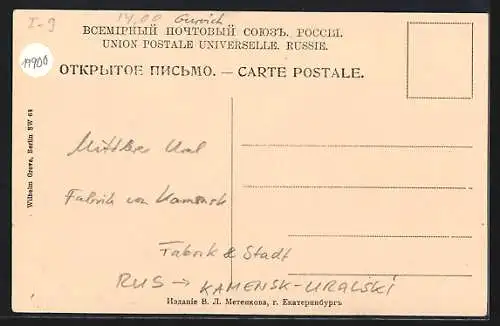 I-9
14,00 Gurvich
ВСЕМІРНЫЙ ПОЧТОВЫЙ СОЮЗЪ. РОССІЯ.
UNION POSTALE UNIVERSELLE. RUSSIE.
19900
ОТКРЫТОЕ ПИСЬМО. — CARTE POSTALE.
Wilhelm Greve, Berlin SW 68
Mittlerer Ural
Fabrik von Kamensk
Fabrik & Stadt
RUS → KAMENSK-URALSKI
Изданіе В. Л. Метенкова, г. Екатеринбургъ